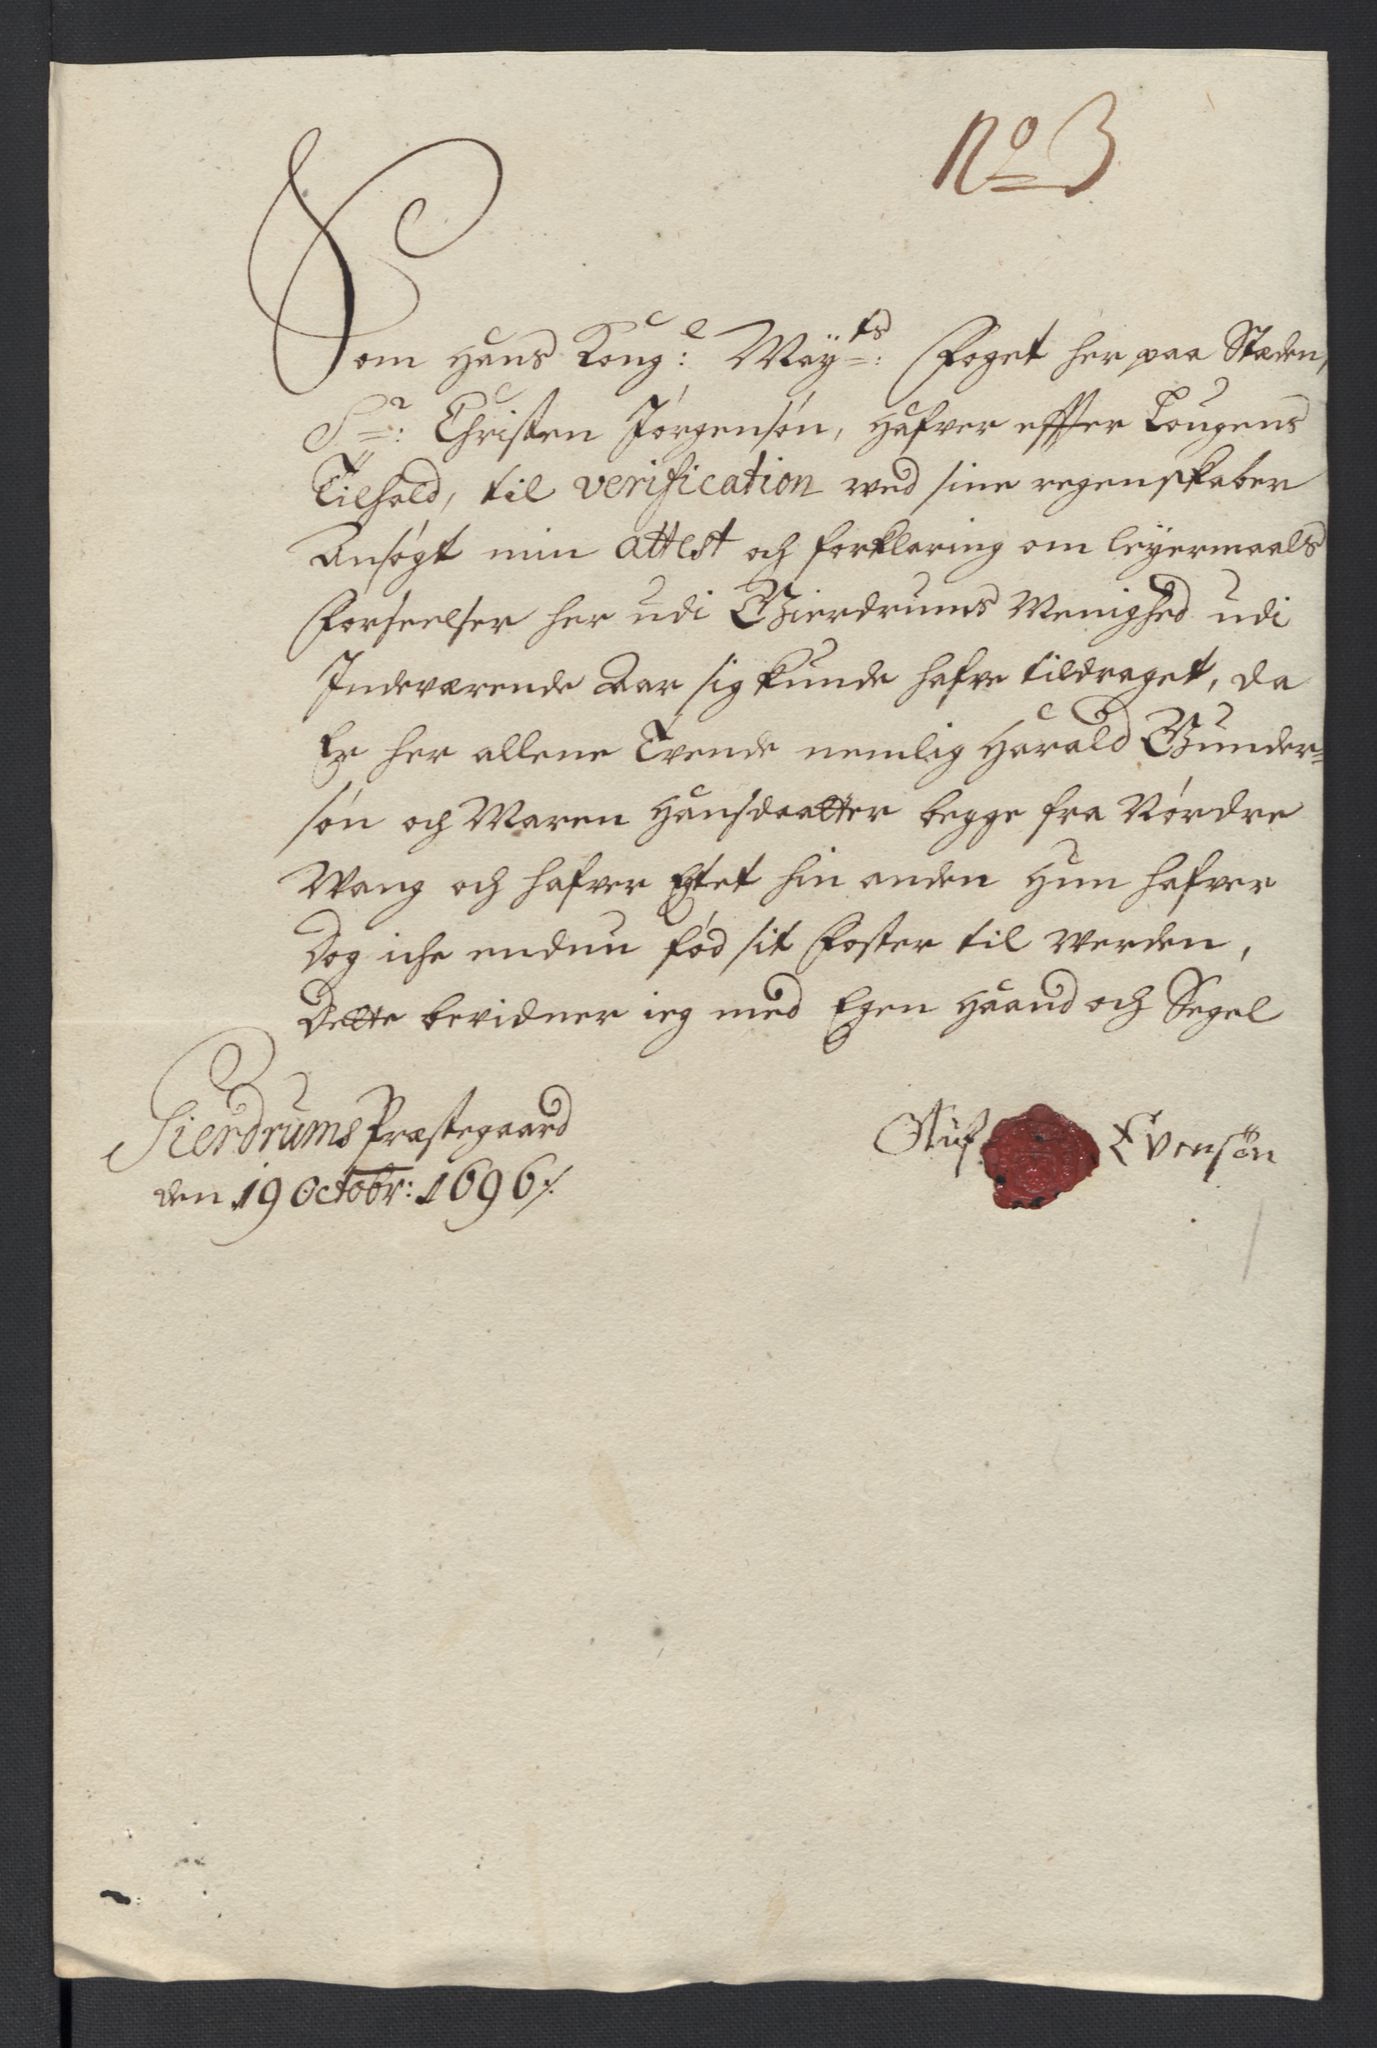 No 3
Som Hans Kong:e Maÿts: Foget her paa Stæden,
Sr: Christen Jørgensøn, Hafver effter Lougens
Tilhold, til verification ved sine regenskaber
Ansøgt min attest och forklaring om leÿermaals
Forseelser her udi Gierdrums Menighed udi
Indeværende Aar sig kunde hafve tildraget, da
Er her allene Tvende nemlig Harald Gunder-
søn och Maren Hansdaatter begge fra Nordre
Wang och hafver Egtet hin anden Hun hafver
Dog iche endnu fød sit Foster til Verden,
Dette bevidner ieg med Egen Haand och Segel
Gierdrums Præstegaard
den 19 Octobr: 1696/.
Oluf Evensøn